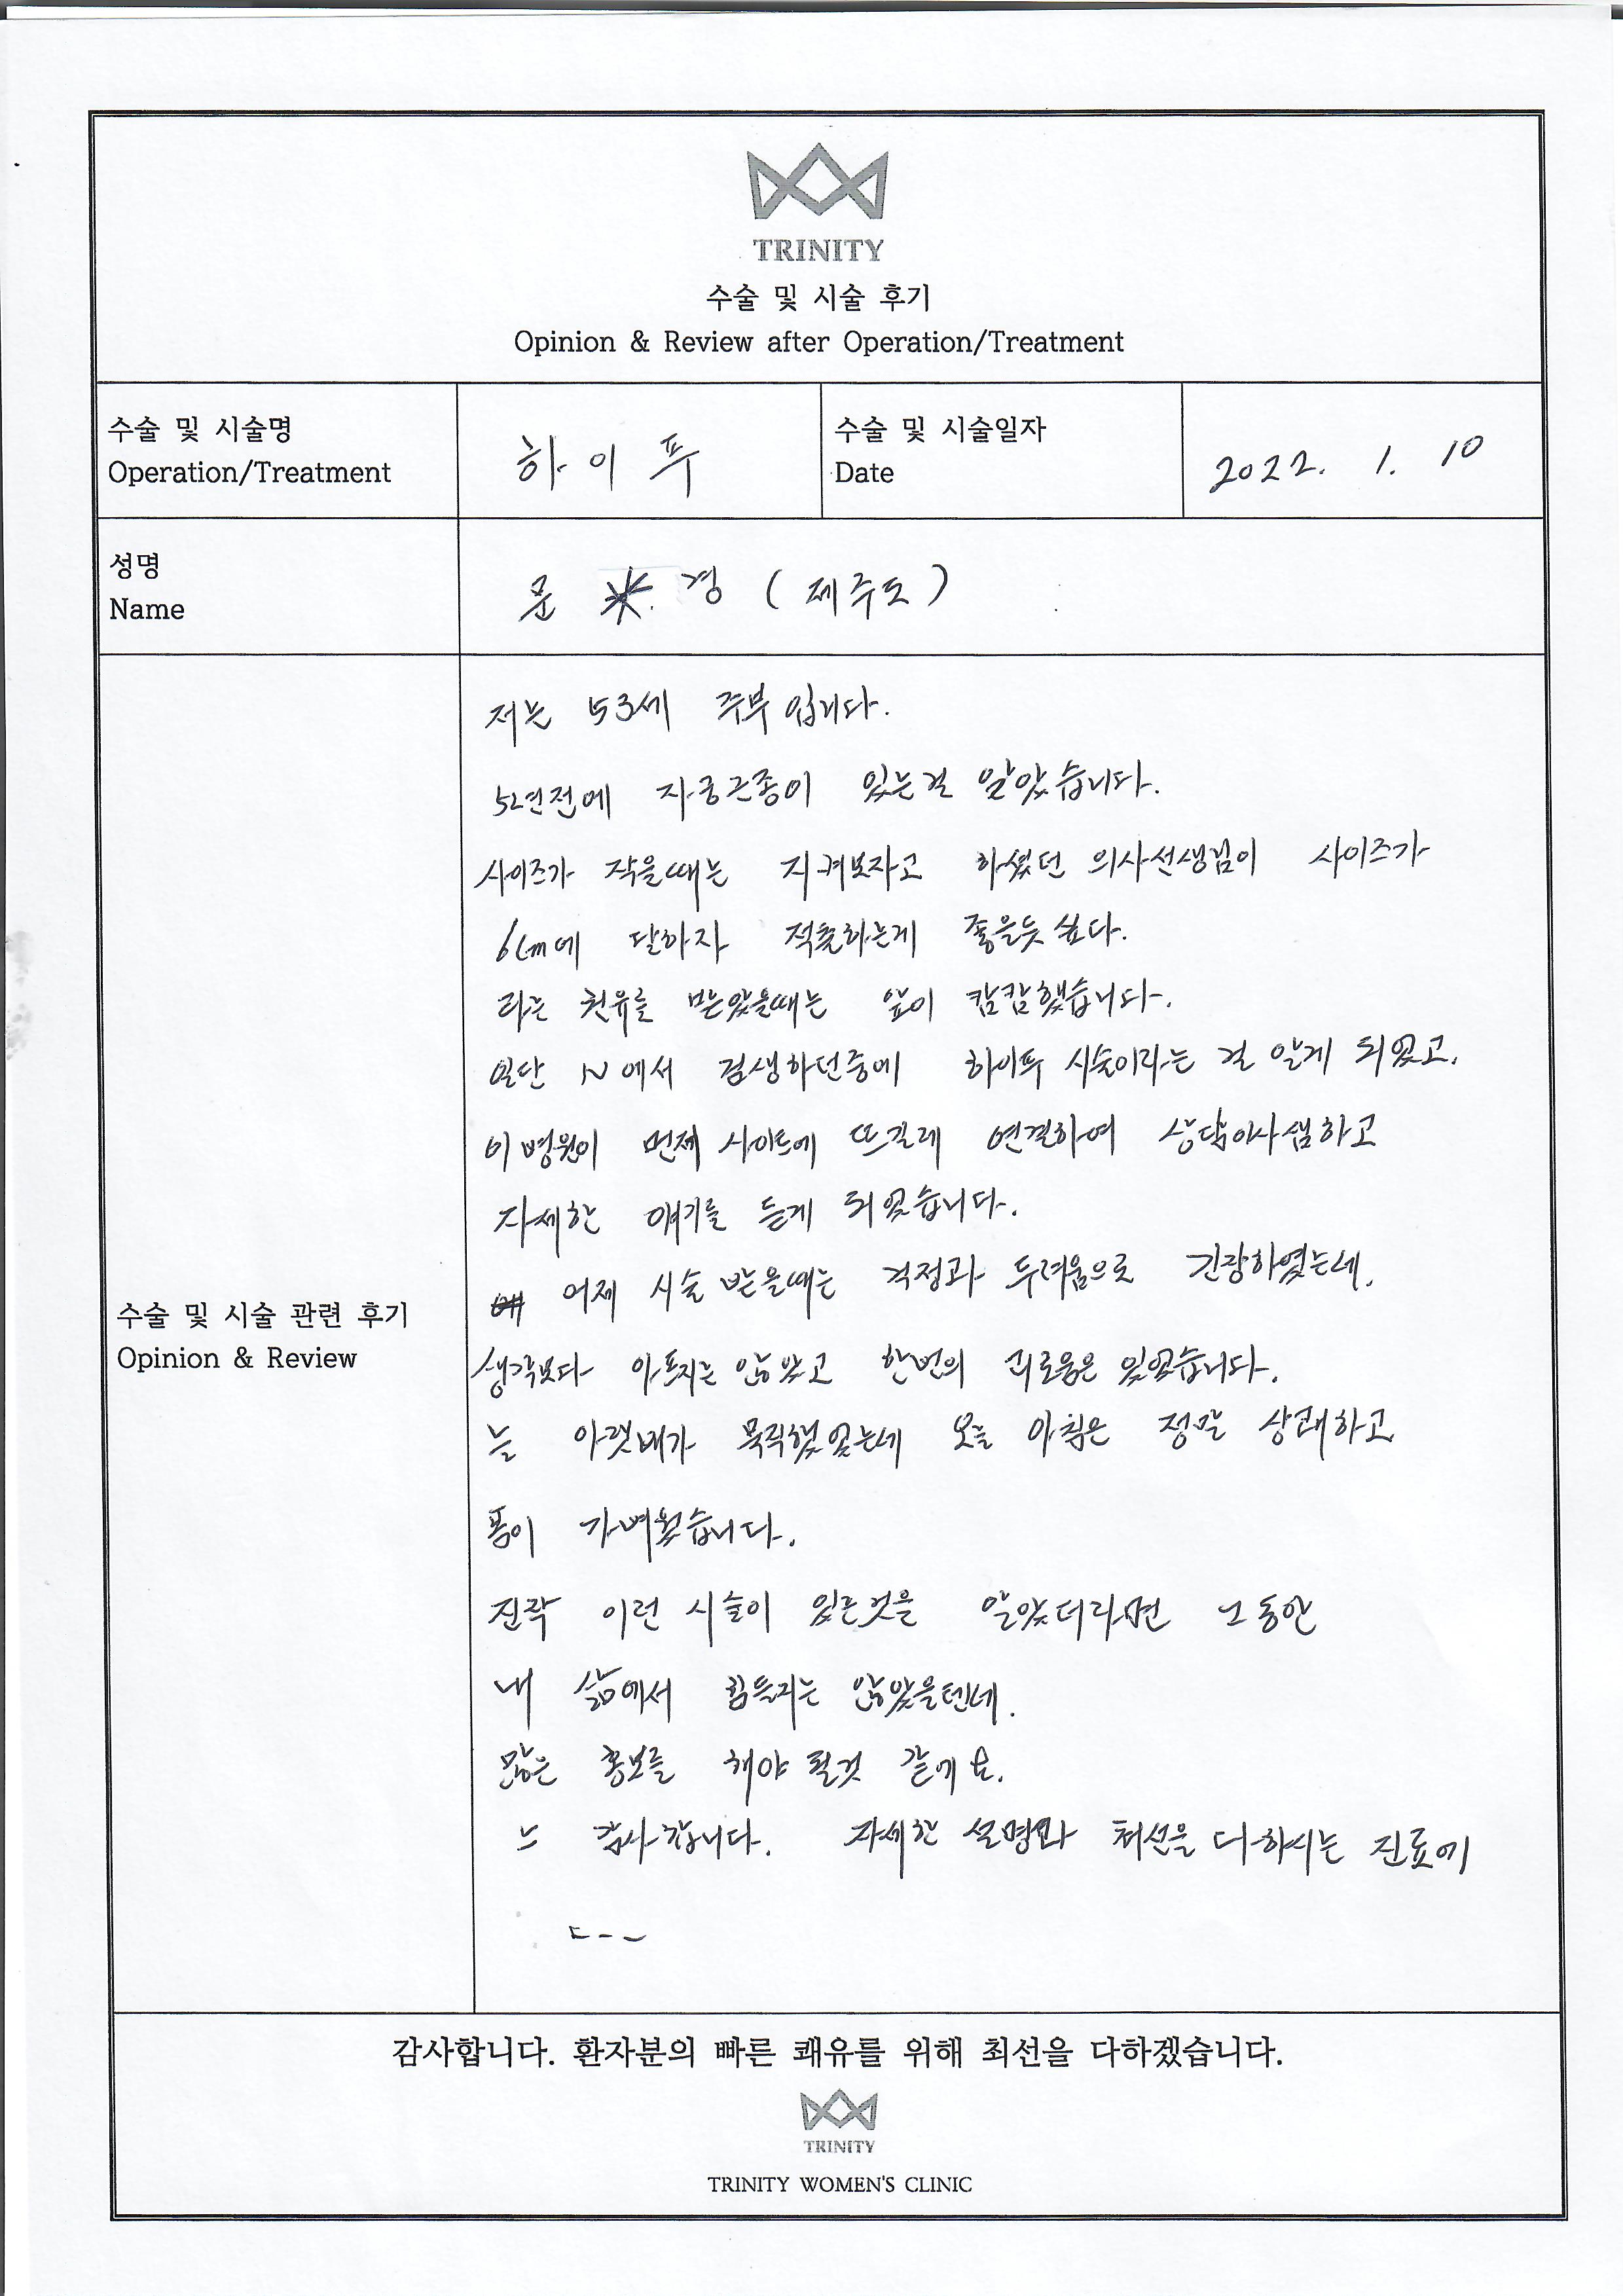 TRINITY
수술 및 시술 후기
Opinion & Review after Operation/Treatment
수술 및 시술명
Operation/Treatment
하이푸
수술 및 시술일자
Date
2022. 1. 10
성명
Name
문 * 경 (제주도)
수술 및 시술 관련 후기
Opinion & Review
저는 53세 주부입니다.
5년전에 자궁근종이 있는걸 알았습니다.
사이즈가 작을때는 지켜보자고 하셨던 의사선생님이 사이즈가
6cm에 달하자 적출하는게 좋을듯 싶다.
라는 권유를 받았을때는 앞이 캄캄했습니다.
일단 N에서 검색하던중에 하이푸 시술이라는 걸 알게 되었고.
이 병원이 먼제 사이트에 뜨길레 연결하여 상담이사샘하고
자세한 얘기를 듣게 되었습니다.
어제 시술 받을때는 걱정과 두려움으로 긴장하였는데.
생각보다 아프지는 않았고 한번의 괴로움은 있었습니다.
늘 아랫배가 묵직했었는데 오늘 아침은 정말 상쾌하고
몸이 가벼웠습니다.
진작 이런 시술이 있는것을 알았더라면 그동안
내 삶에서 힘들지는 않았을텐데.
많은 홍보를 해야 될것 같에요.
감사합니다. 자세한 설명과 최선을 다하시는 진료에
감사합니다. 환자분의 빠른 쾌유를 위해 최선을 다하겠습니다.
TRINITY
TRINITY WOMEN'S CLINIC